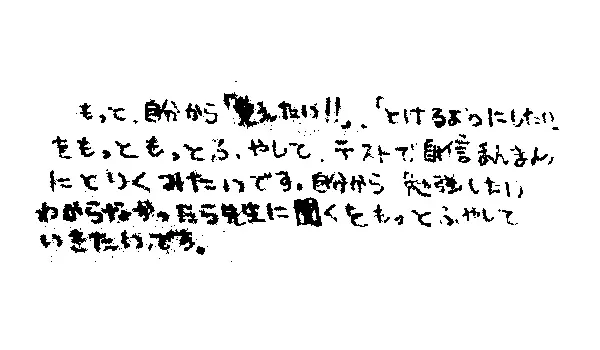 もっと、自分から「覚えたい!!」、「とけるようにしたい
をもっともっとふやして、テストで自信まんまん
にとりくみたいです。自分から 勉強したい
わからなかったら先生に聞くをもっとふやして
いきたいです。